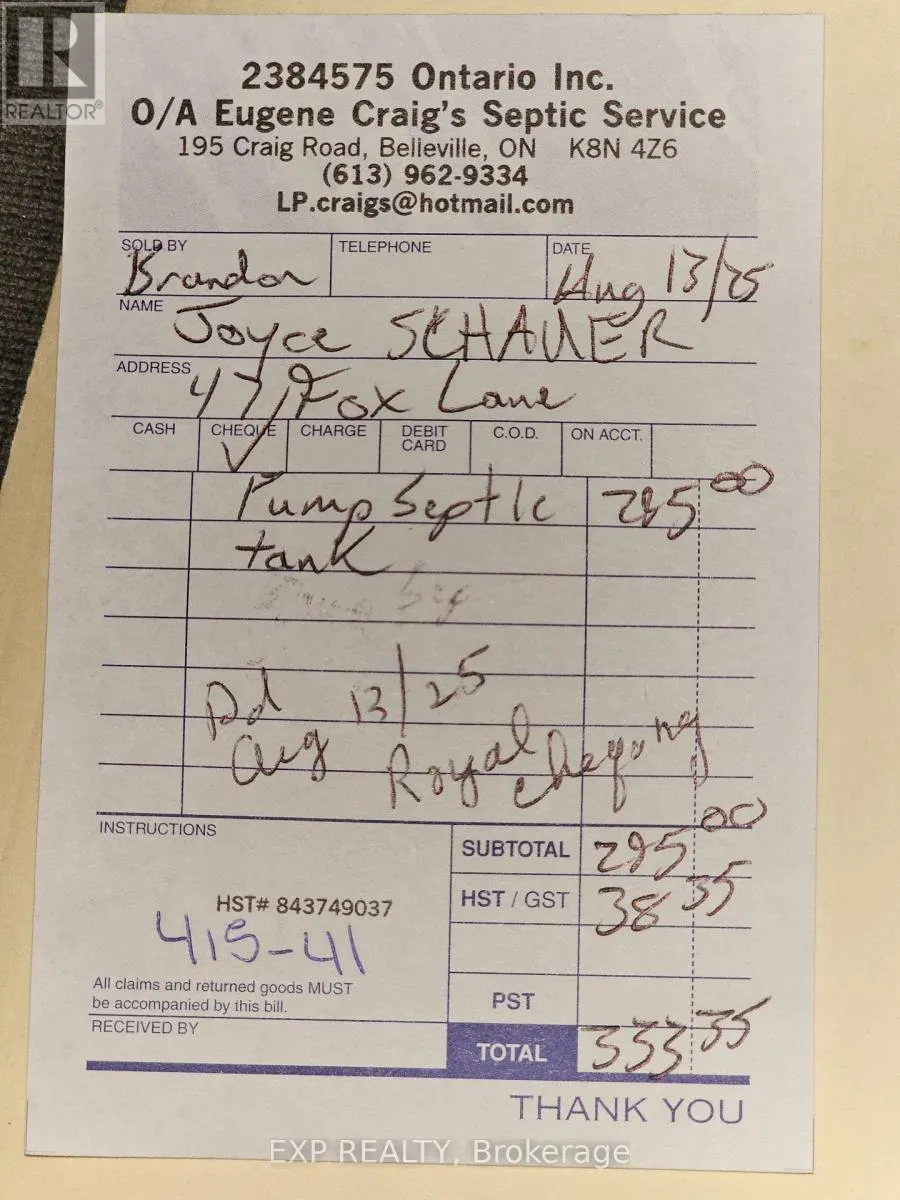 REALTOR®
2384575 Ontario Inc.
O/A Eugene Craig's Septic Service
195 Craig Road, Belleville, ON K8N 4Z6
(613) 962-9334
LP.craigs@hotmail.com
SOLD BY TELEPHONE DATE
Brandon Aug 13/25
NAME
Joyce SCHAUER
ADDRESS
47 Fox Lane
CASH CHEQUE CHARGE DEBIT CARD C.O.D. ON ACCT.
✓
Pump Septic 295 00
tank
Pd
Aug 13/25
Royal chequing
INSTRUCTIONS
SUBTOTAL 295 00
HST# 843749037
HST / GST 38 35
415-41
All claims and returned goods MUST
be accompanied by this bill.
PST
RECEIVED BY
TOTAL 333 35
THANK YOU
EXP REALTY, Brokerage